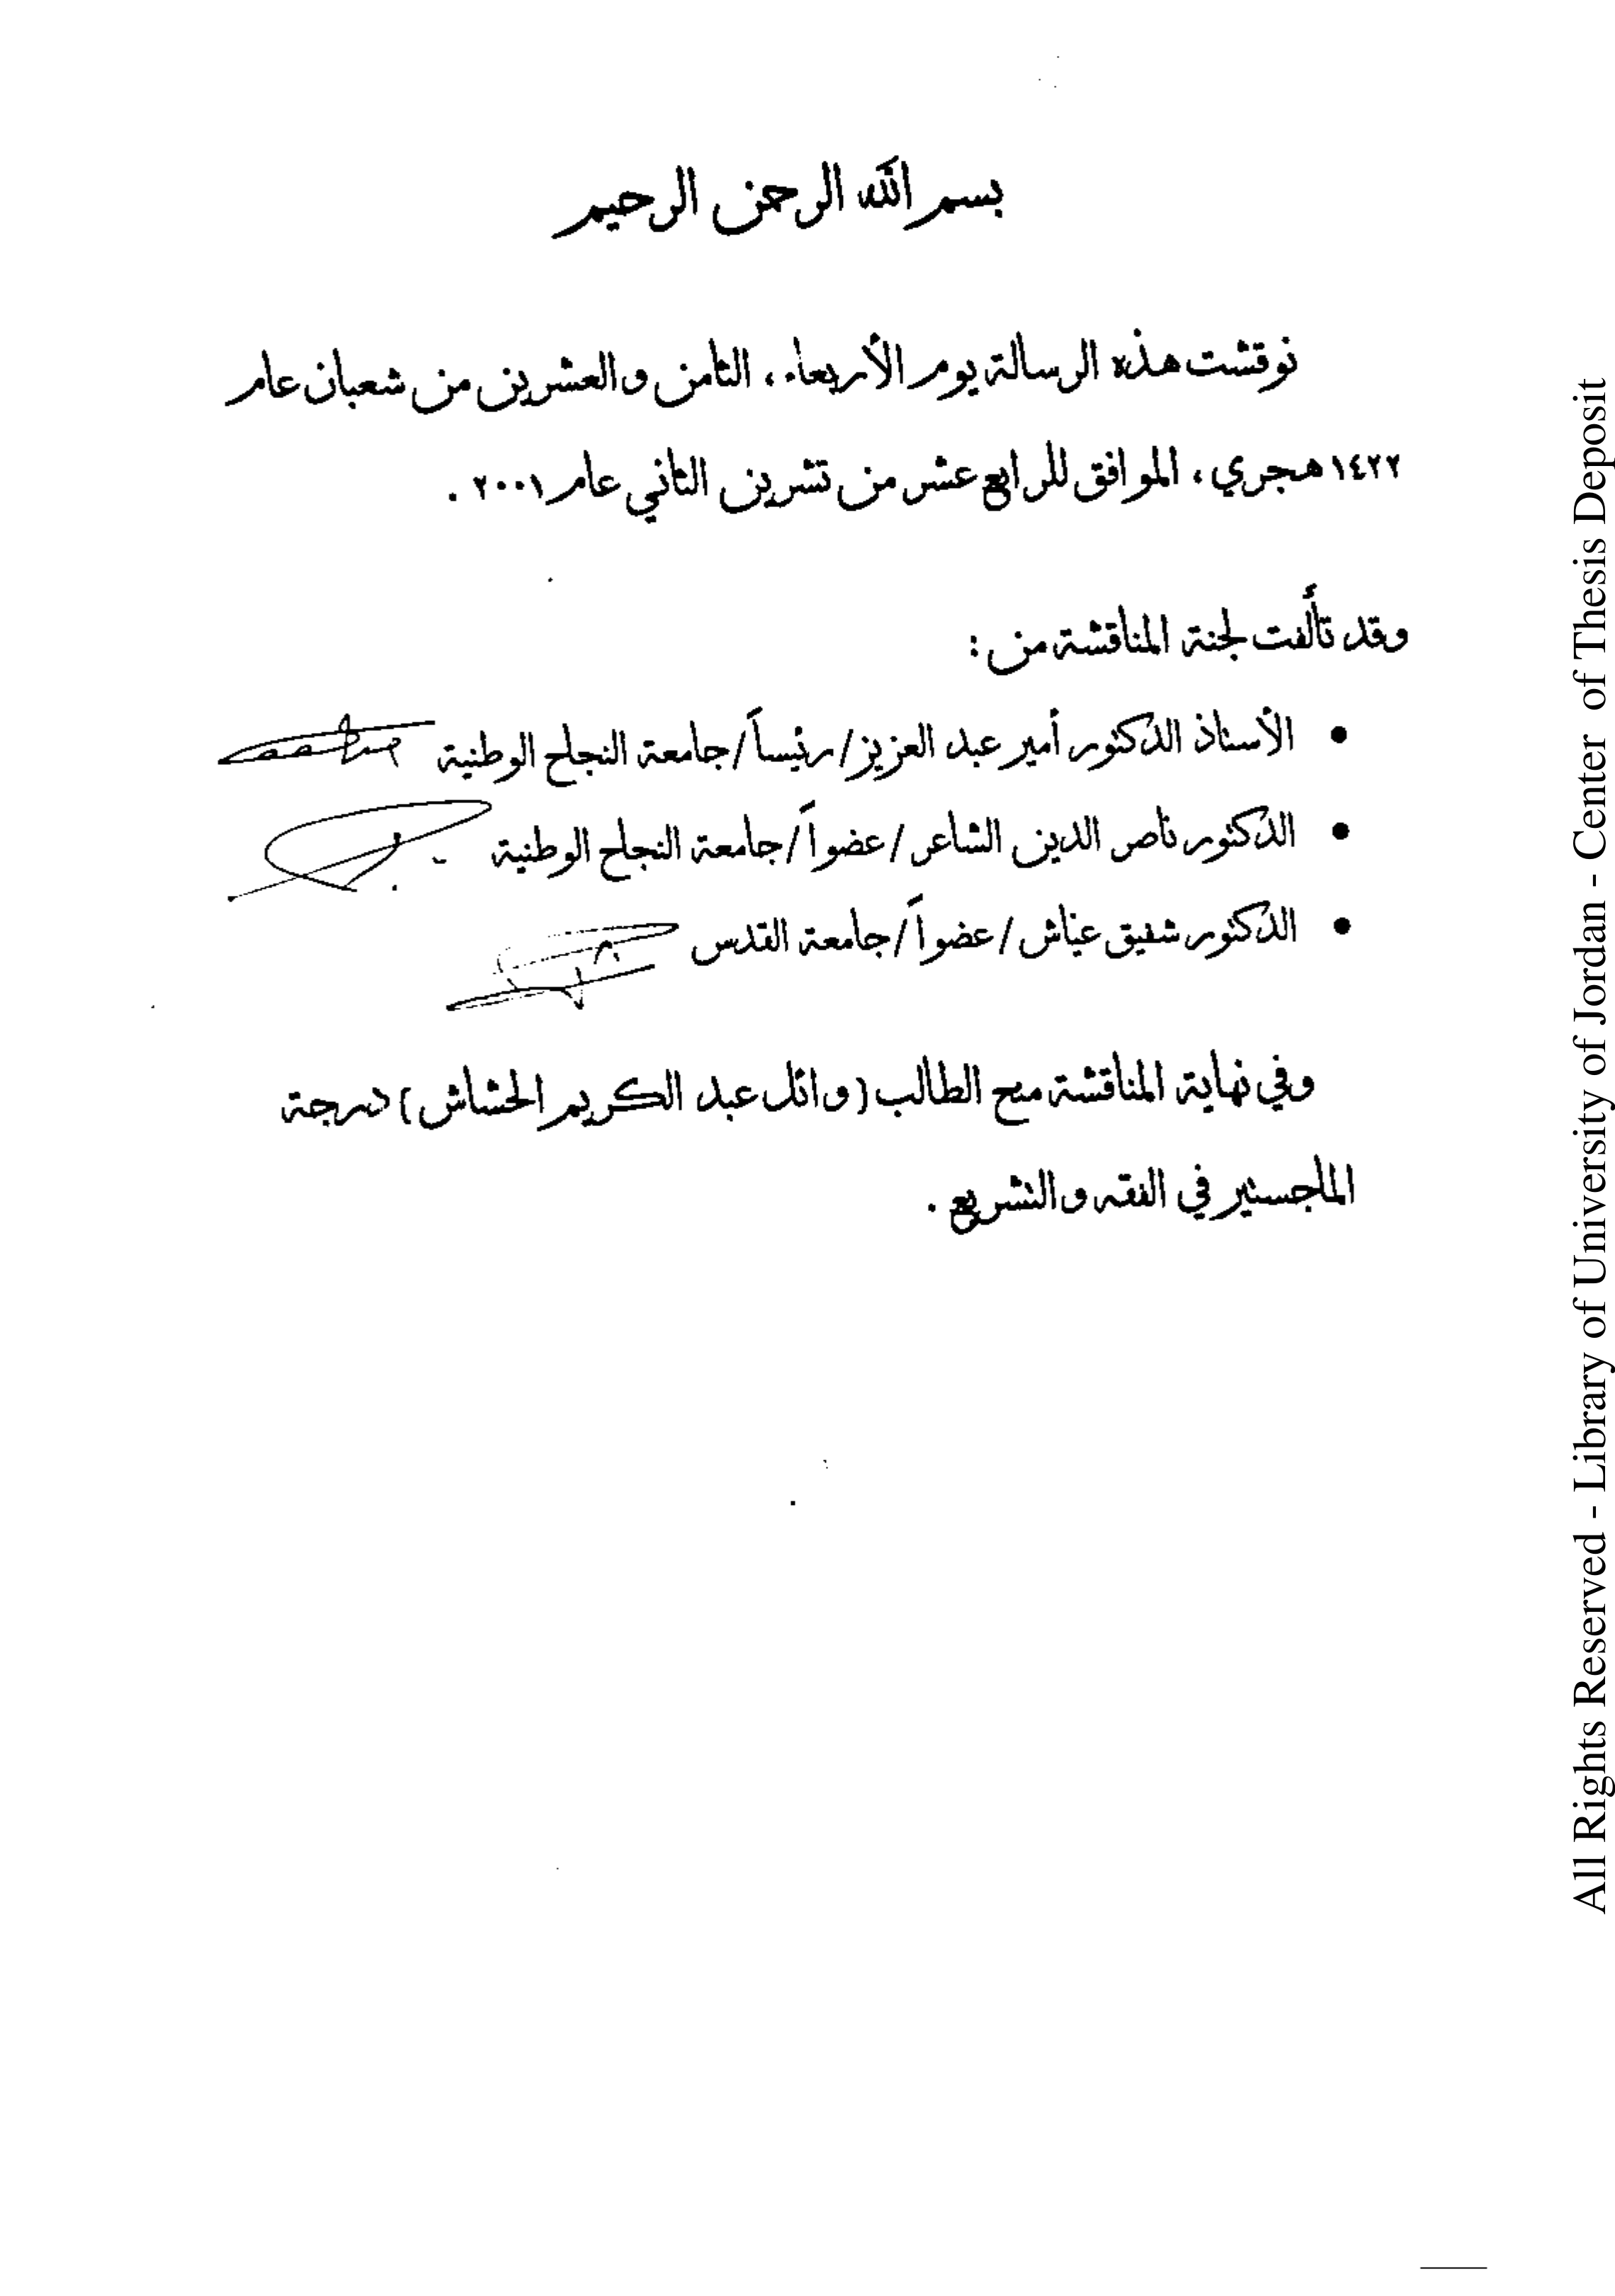 بسم الله الرحمن الرحيم
نوقشت هذه الرسالة يوم الأربعاء، الثامن والعشرين من شعبان عام
١٤٢٢ هجري، الموافق للرابع عشر من تشرين الثاني عام ٢٠٠١.
وقد تألفت لجنة المناقشة من:
• الأستاذ الدكتور أمير عبد العزيز/ رئيساً/ جامعة النجاح الوطنية
• الدكتور ناصر الدين الشاعر/ عضواً/ جامعة النجاح الوطنية
• الدكتور شفيق عياش/ عضواً/ جامعة القدس
وفي نهاية المناقشة منح الطالب (وائل عبد الكريم الحشاش) درجة
الماجستير في الفقه والتشريع.
All Rights Reserved - Library of University of Jordan - Center of Thesis Deposit